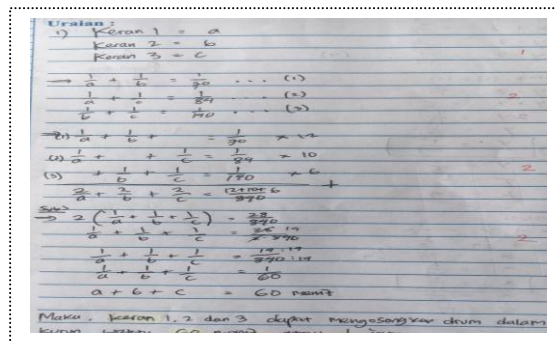 Uraian :
1) Keran 1 = a
Keran 2 = b
Keran 3 = c
1
→ 1/a + 1/b = 1/70 ... (1)
1/a + 1/c = 1/84 ... (2)
2
1/b + 1/c = 1/140 ... (3)
(1) 1/a + 1/b + = 1/70 × 12
(2) 1/a + + 1/c = 1/84 × 10
(3) + 1/b + 1/c = 1/140 × 6
2
+
2/a + 2/b + 2/c = 12+10+6/840
→ 2 (1/a + 1/b + 1/c) = 28/840
1/a + 1/b + 1/c = 28 14/2 840
2
1/a + 1/b + 1/c = 14:14/840:14
1/a + 1/b + 1/c = 1/60
a + b + c = 60 menit
Maka, keran 1, 2 dan 3 dapat mengosongkan drum dalam
kurun waktu 60 menit